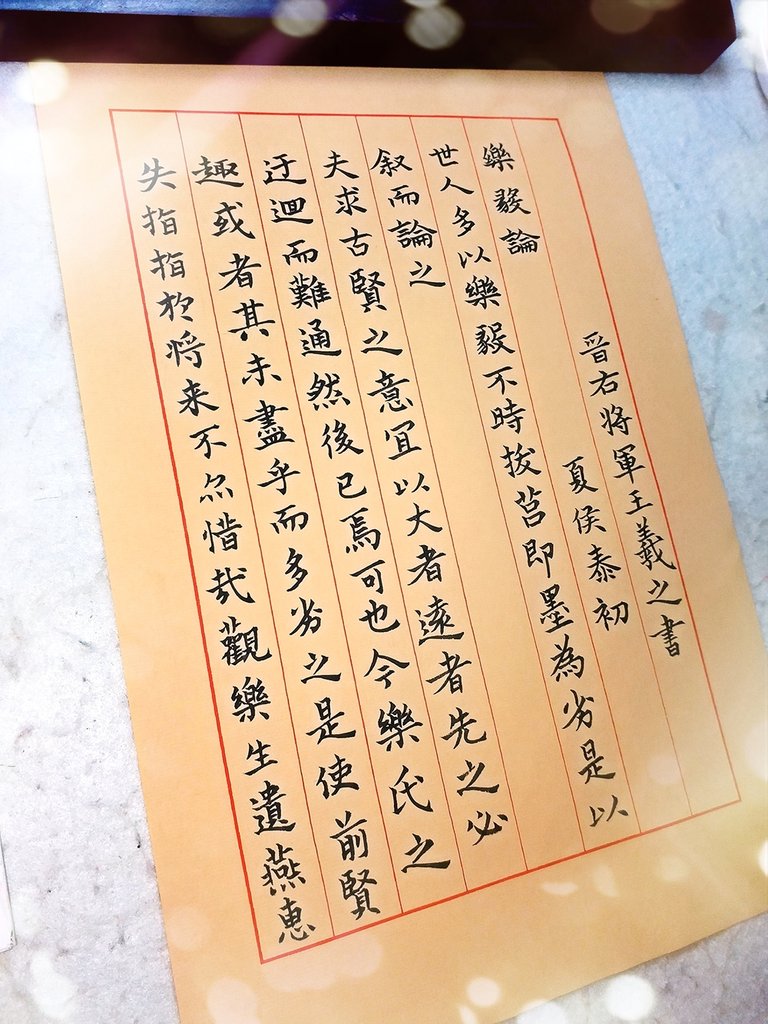 晉右將軍王羲之書
樂毅論　夏侯泰初
世人多以樂毅不時拔莒即墨為劣是以
叙而論之
夫求古賢之意宜以大者遠者先之必
迂迴而難通然後已焉可也今樂氏之
趣或者其未盡乎而多劣之是使前賢
失指指於将来不尒惜哉觀樂生遺燕惠